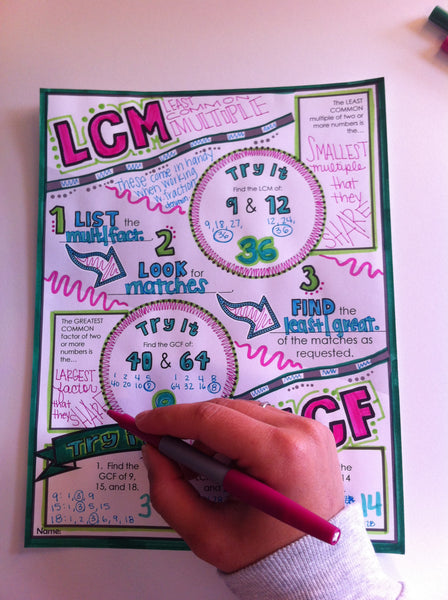 LCM
LEAST
COMMON
MULTIPLE
The LEAST
COMMON
multiple of two
or more numbers
is the...
SMALLEST
multiple
that
they
SHARE
these come in handy
when working
w. fractions
Try It
Find the LCM of:
9 & 12
9, 18, 27,
36
12, 24,
36
36
1 LIST the
mult/fact.
2 LOOK for
matches
3
FIND the
least/great.
of the matches as
requested.
The GREATEST
COMMON
factor of two
or more
numbers is
the...
LARGEST
factor
that
they
SHARE
Try It
Find the GCF of:
40 & 64
1 2 4 5
40 20 10 8
1 2 4 8
64 32 16 8
GCF
Try
1. Find the
GCF of 9,
15, and 18.
9: 1, 3, 9
15: 1, 3, 5, 15
18: 1, 2, 3, 6, 9, 18
3
and
14
14
28
Name: